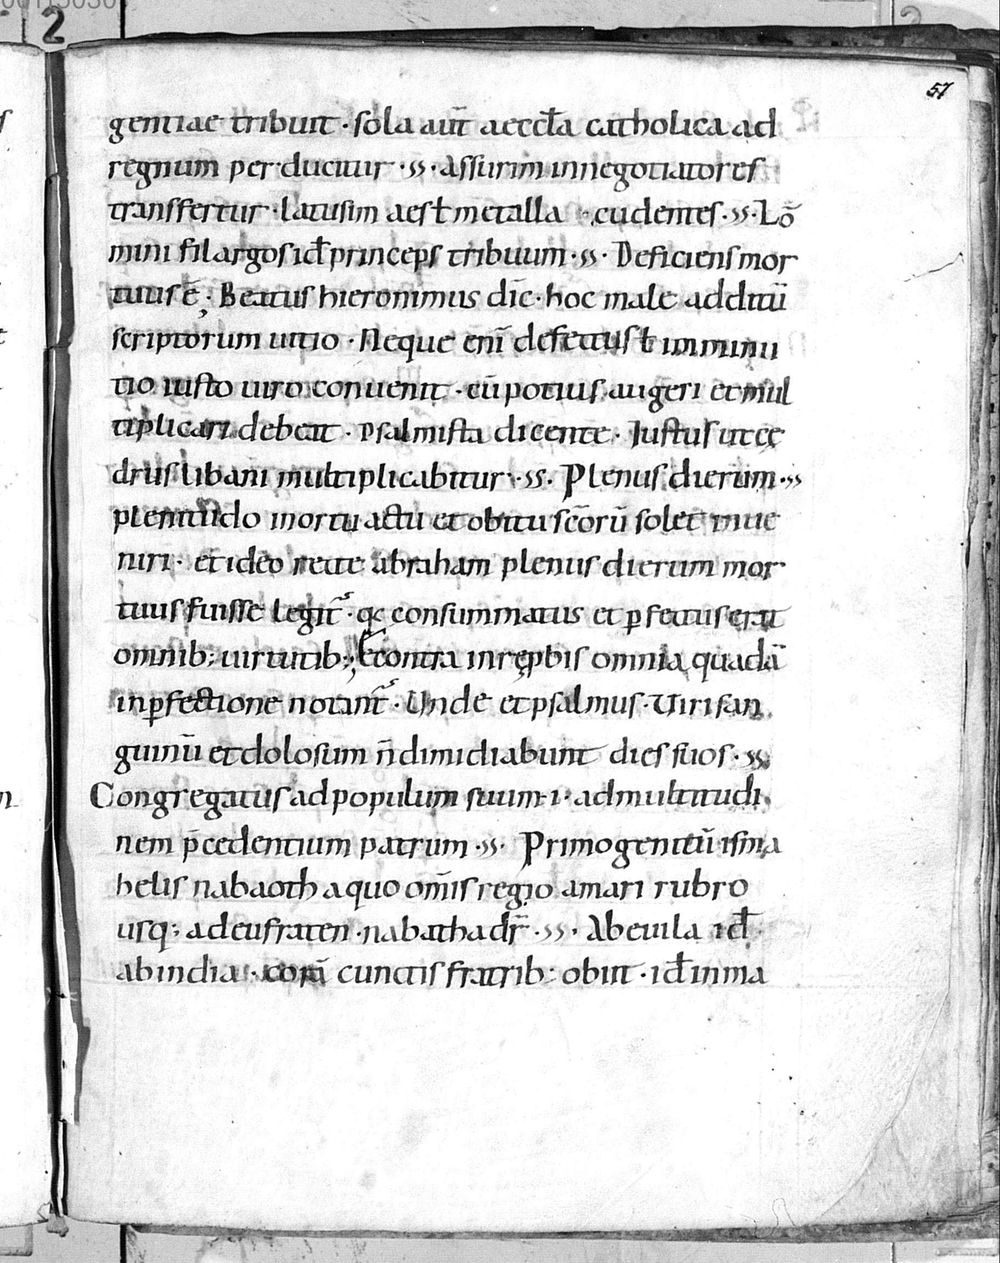 57
gentiae tribuit · sola aut̄ aeccƚa catholica ad
regnum per·ducitur ·,,· Assurim in negotiatores
transfertur · latusim aes ƚ metalla · cudentes ·,,· Lō
mini filargos id̄ princeps tribuum ·,,· Deficiens mor
tuus ē · Beatus hieronimus dic̄ · hoc male additū
scriptorum uitio · Neque eni̅ defectus ƚ imminu
tio iusto uiro conuenit · cū potius augeri et mul
tiplicari debeat · psalmista dicente · Justus ut cę
drus libani multiplicabitur ·,,· Plenus dierum ·,,
plenitudo mortu actu et obitu sc̄orū solet inue
niri · et ideo recte abraham plenus dierum mor
tuus fuisse legit᷒ · qᷓ consummatus et ꝑfectus erat
omnib: uirtutib:, Econtra in rępbis omnia quadā
inꝑfectione notant᷒ · Unde et psalmus · Uiri san
guinū et dolosum n̄ dimidiabunt dies suos ·,,
Congregatus ad populum suum · i · ad multitudi
nem p̄cedentium patrum ·,,· Primogenitū isma
helis nabaoth a quo om̄is regio a mari rubro
usq; ad eufraten · nabatha dr̄ ·,,· Abeuila id̄
ab india · corā cunctis fratrib: obiit · id̄ in ma